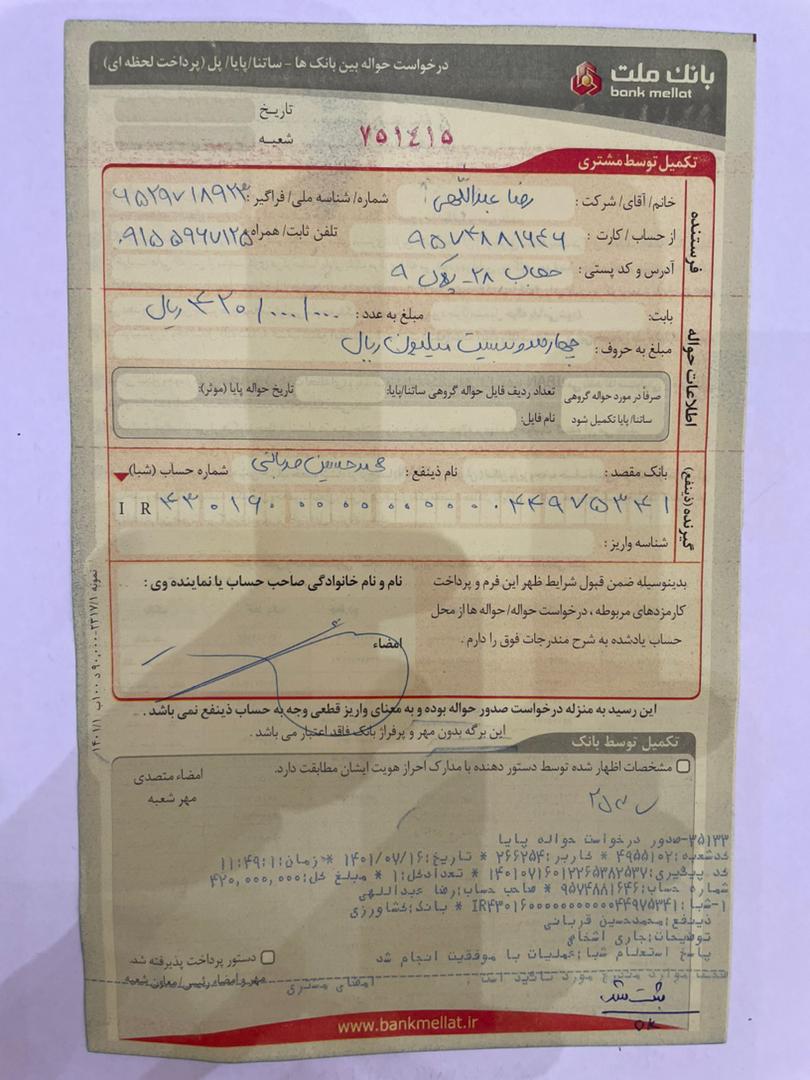 بانک ملت
bank mellat
درخواست حواله بین بانک ها - ساتنا/پایا/ پل (پرداخت لحظه ای)
تاریخ
شعبه
۷۵۱٤۱۵
تکمیل توسط مشتری
فرستنده
خانم/ آقای/ شرکت: رضا عبداللهی شماره/ شناسه ملی/ فراگیر:
از حساب / کارت: ۹۵۷۴۸۸۱۶۴۶ تلفن ثابت/ همراه: ۰۹۱۵۵۹۶۷۱۲۵
آدرس و کد پستی: ۲۸- پلاک ۹
اطلاعات حواله
بابت: مبلغ به عدد: ۴۲۰/۰۰۰/۰۰۰ ریال
مبلغ به حروف: چهارصد و بیست میلیون ریال
صرفاً در مورد حواله گروهی ساتنا/ پایا تکمیل شود
تعداد ردیف فایل حواله گروهی ساتنا/پایا: تاریخ حواله پایا (موثر):
نام فایل:
گیرنده (ذینفع)
بانک مقصد: نام ذینفع: محمدحسین قربانی شماره حساب (شبا)
IR
شناسه واریز:
بدینوسیله ضمن قبول شرایط ظهر این فرم و پرداخت
کارمزدهای مربوطه، درخواست حواله/ حواله ها از محل
حساب یادشده به شرح مندرجات فوق را دارم.
نام و نام خانوادگی صاحب حساب یا نماینده وی:
امضاء
این رسید به منزله درخواست صدور حواله بوده و به معنای واریز قطعی وجه به حساب ذینفع نمی باشد.
این برگه بدون مهر و پرفراژ بانک فاقد اعتبار می باشد.
تکمیل توسط بانک
مشخصات اظهار شده توسط دستور دهنده با مدارک احراز هویت ایشان مطابقت دارد.
امضاء متصدی
مهر شعبه
۳۵۱۳۳-صدور درخواست حواله پایا
کدشعبه:۴۹۵۵۱۰۲ * کاربر:۲۶۶۲۵۴ * تاریخ:۱۴۰۱/۰۷/۱۶ * زمان:۱۱:۴۹:۱
کد پیگیری:۱۴۰۱۰۷۱۶۰۱۲۲۶۵۳۸۲۵۳۷ * تعدادکل:۱ * مبلغ کل:۴۲۰,۰۰۰,۰۰۰
شماره حساب:۹۵۷۴۸۸۱۶۴۶ * صاحب حساب:رضا عبداللهی
۱-شبا:IR۴۳۰۱۶۰۰۰۰۰۰۰۰۰۰۰۴۴۹۷۵۳۴۱ * بانک:کشاورزی
ذینفع:محمدحسین قربانی
توضیحات:جاری اشخاص
پاسخ استعلام شبا:عملیات با موفقیت انجام شد
صحت موارد مندرج مورد تائید است. امضای مشتری
دستور پرداخت پذیرفته شد.
مهر و امضاء رئیس/ معاون شعبه
ثبت شد
ok
www.bankmellat.ir